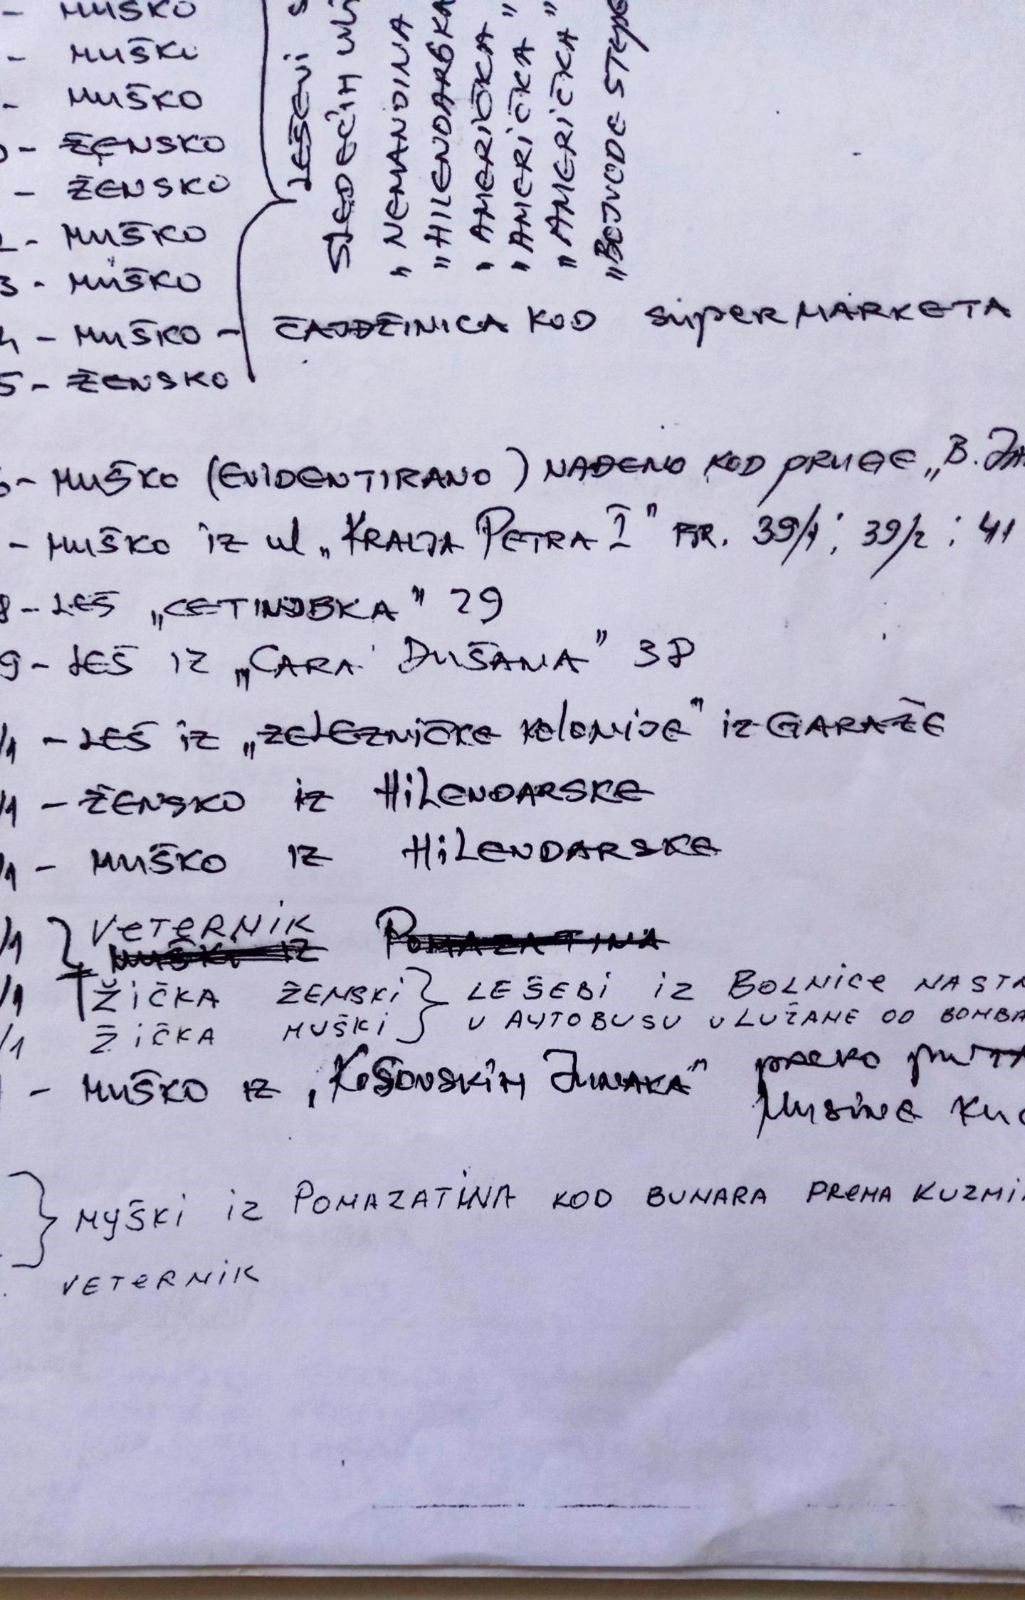 - MUŠKO
- MUŠKI
- MUŠKO
- ŽENSKO
- ŽENSKO
- MUŠKO
3 - MUŠKO
4 - MUŠKO - ČAJDŽINICA KOD SUPERMARKETA
5 - ŽENSKO
LEŠEVI
SLEDEĆIH
" NEMANJINA
"HILENDARSKA
" AMERIČKA "
"AMERIČKA "
" AMERIČKA "
"VOJVODE STEPE
- MUŠKO (EVIDENTIRANO) NAĐENO KOD PRUGE „B.
- MUŠKO IZ ul „KRALJA PETRA I" BR. 39/1; 39/2; 41
8 - LEŠ „CETINJSKA" 29
9 - LEŠ IZ „CARA DUŠANA" 38
/1 - LEŠ IZ „ŽELEZNIČKE KOLONIJE" IZ GARAŽE
/1 - ŽENSKO IZ HILENDARSKE
/1 - MUŠKO IZ HILENDARSKE
/1 VETERNIK
MUŠKI IZ POMAZATINA
/1 ŽIČKA ŽENSKI } LEŠEVI IZ BOLNICE
/1 ŽIČKA MUŠKI } U AUTOBUSU U LUŽANE OD BOMBA
- MUŠKO IZ „KOSOVSKIH JUNAKA" PREKO PUTA
MUSINE
} MUŠKI IZ POMAZATINA KOD BUNARA PREMA
VETERNIK